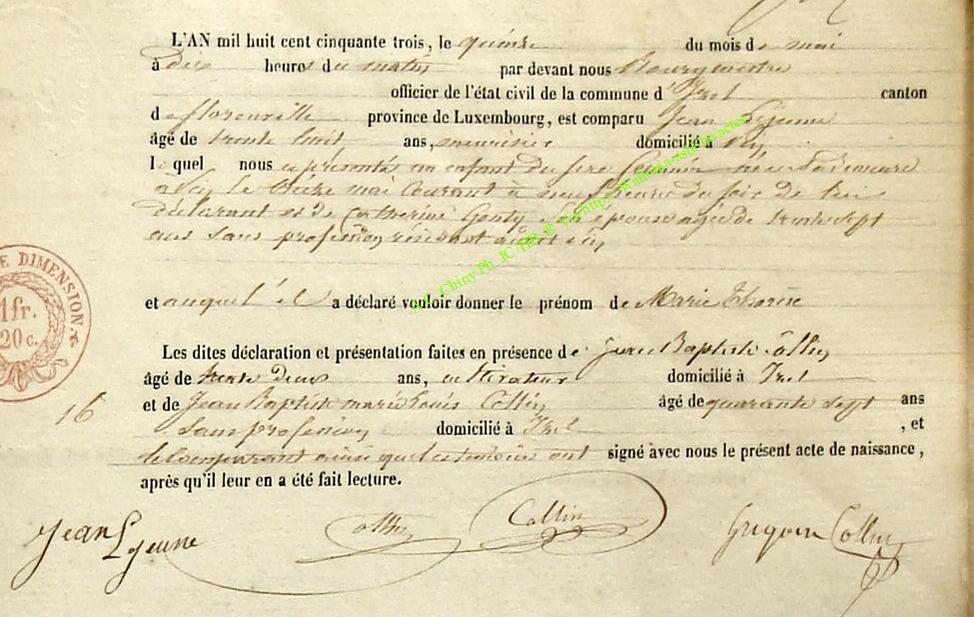 L'AN mil huit cent cinquante trois, le quinze du mois de mai
à dix heures du matin par devant nous Bourgmestre
officier de l'état civil de la commune d'Izel canton
de florenville province de Luxembourg, est comparu Jean Lejeune
âgé de trente huit ans, menuisier domicilié à
lequel nous a présenté un enfant du sexe féminin
le onze mai courant à neuf heures du soir de lui
déclarant et de Catherine Gonty son épouse agée de trente sept
ans sans profession résidant
et auquel il a déclaré vouloir donner le prénom de Marie Thérèse
Les dites déclaration et présentation faites en présence de Jean Baptiste Collin
âgé de trente deux ans, cultivateur domicilié à Izel
et de Jean Baptiste marie Louis Collin âgé de quarante sept ans
16
sans profession domicilié à Izel , et
le comparant ainsi que les témoins ont signé avec nous le présent acte de naissance,
après qu'il leur en a été fait lecture.
DIMENSION
1fr.
20 c.
Jean Lejeune Collin Collin Grégoire Collin